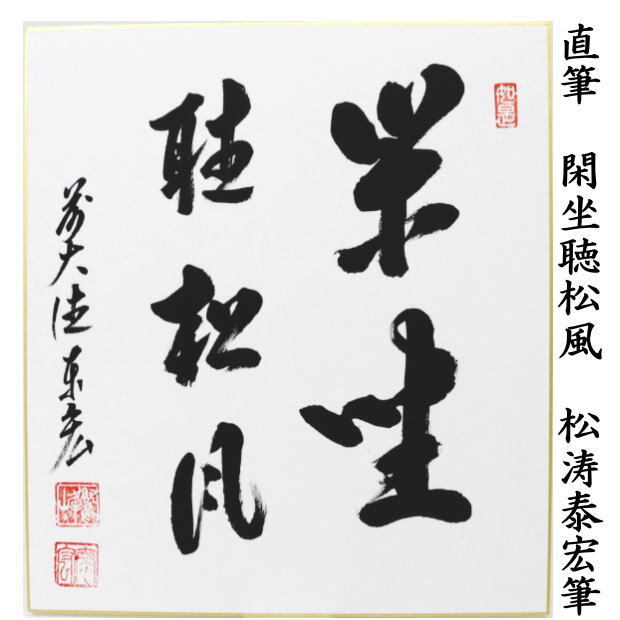 直筆 閑坐聴松風 松涛泰宏筆
閑坐
聴松風
前大徳泰宏
如是